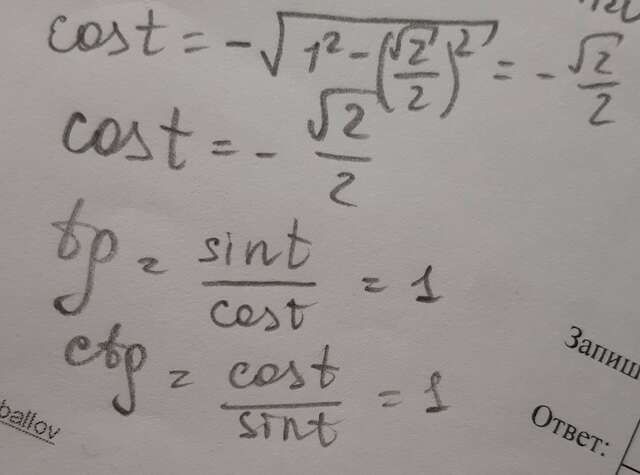 cost = -√(1² - (√2/2)²) = - √2/2
cost = - √2/2
tg = sint/cost = 1
ctg = cost/sint = 1
Запиш
Ответ:
ballov